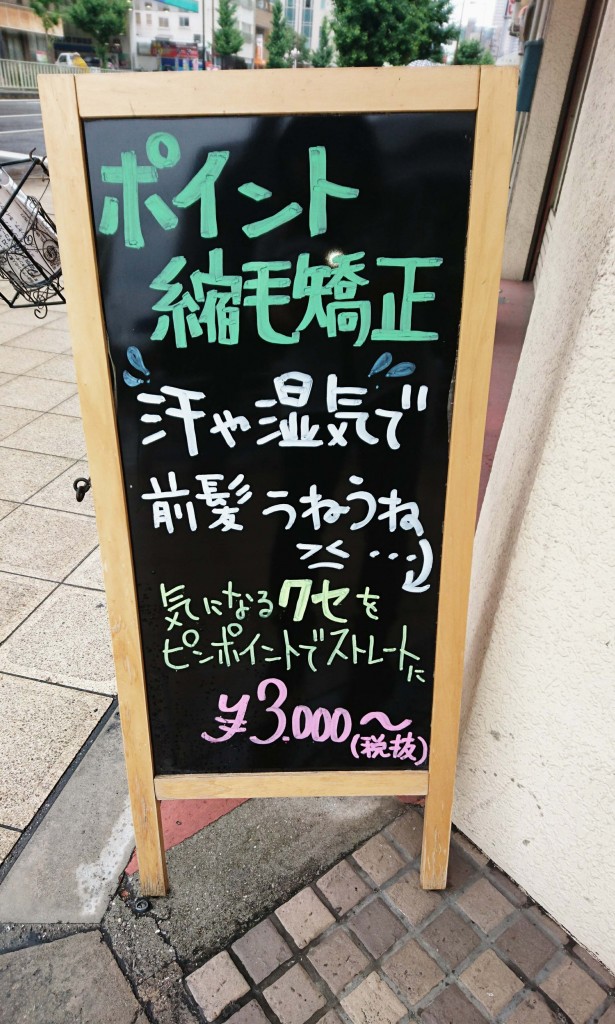 ポイント
縮毛矯正
汗や湿気で
前髪うねうね
><...
気になるクセを
ピンポイントでストレートに
¥3.000〜
(税抜)